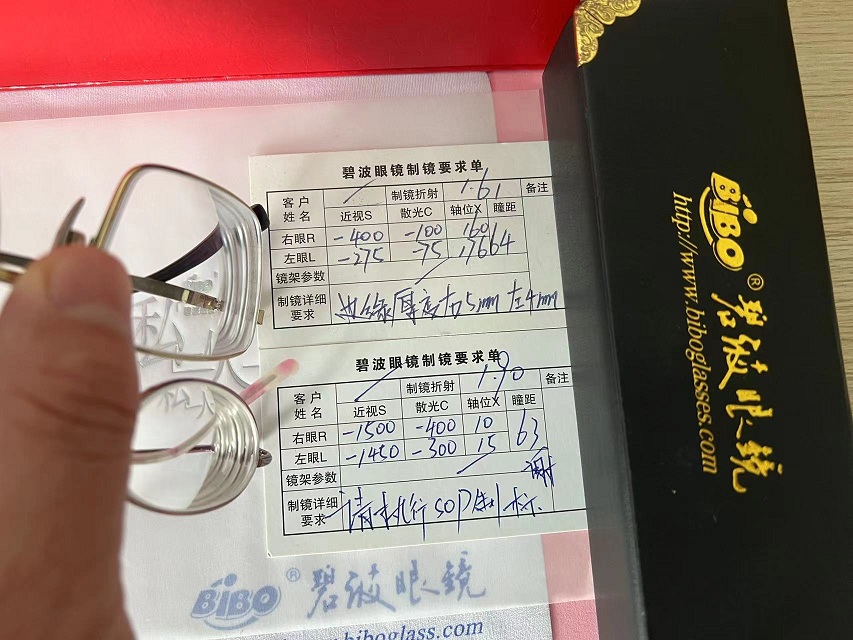 碧波眼镜制镜要求单
客户姓名 制镜折射 1.61 备注
近视S 散光C 轴位X 瞳距
右眼R -400 -100 160
左眼L -275 -75 176 64
镜架参数
制镜详细要求 边缘厚度右5mm 左4mm
碧波眼镜制镜要求单
客户姓名 制镜折射 1.90 备注
近视S 散光C 轴位X 瞳距
右眼R -1500 -400 10 63
左眼L -1450 -300 15
镜架参数
制镜详细要求 请 执行SOP
BiBO® 碧波眼镜
www.biboglass.com
BiBO® 碧波眼镜
http://www.biboglasses.com
私人
私人